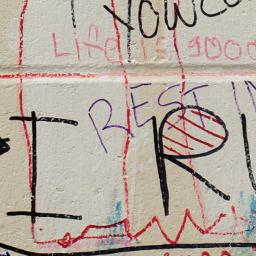 Life is good
REST IN
I R